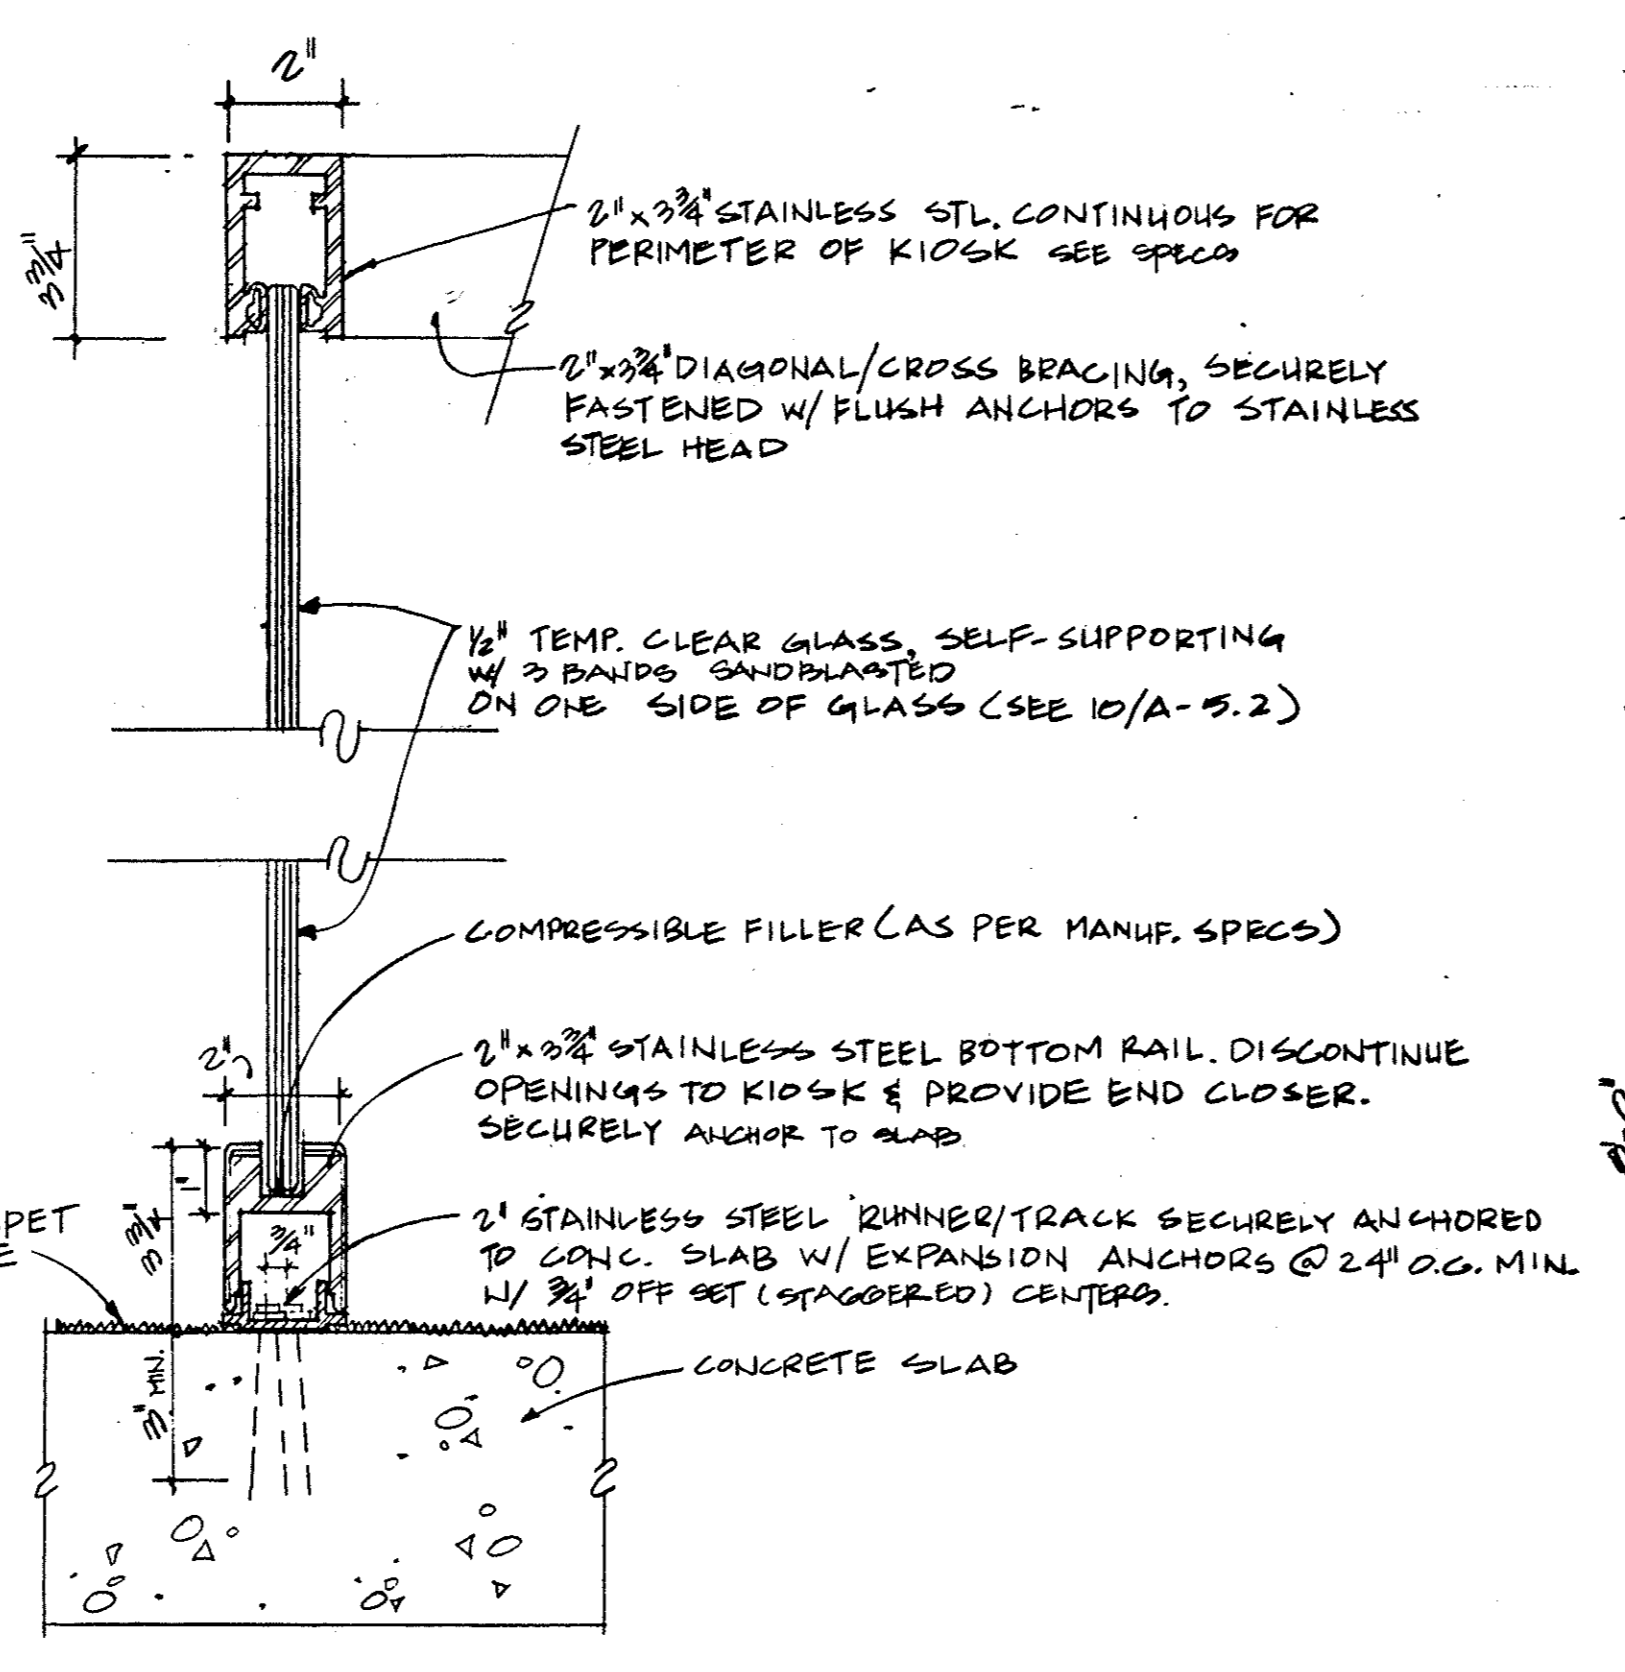 2"
3 3/4"
2"x3 3/4" STAINLESS STL. CONTINUOUS FOR
PERIMETER OF KIOSK SEE SPECS
2"x3 3/4" DIAGONAL/CROSS BRACING, SECURELY
FASTENED W/ FLUSH ANCHORS TO STAINLESS
STEEL HEAD
1/2" TEMP. CLEAR GLASS, SELF-SUPPORTING
W/ 3 BANDS SANDBLASTED
ON ONE SIDE OF GLASS (SEE 10/A-5.2)
COMPRESSIBLE FILLER (AS PER MANUF. SPECS)
2"
2"x3 3/4" STAINLESS STEEL BOTTOM RAIL. DISCONTINUE
OPENINGS TO KIOSK & PROVIDE END CLOSER.
SECURELY ANCHOR TO SLAB
1"
3 3/4"
3/4"
PET
E
2" STAINLESS STEEL RUNNER/TRACK SECURELY ANCHORED
TO CONC. SLAB W/ EXPANSION ANCHORS @ 24" O.C. MIN.
W/ 3/4" OFF SET (STAGGERED) CENTERS.
3" MIN.
CONCRETE SLAB